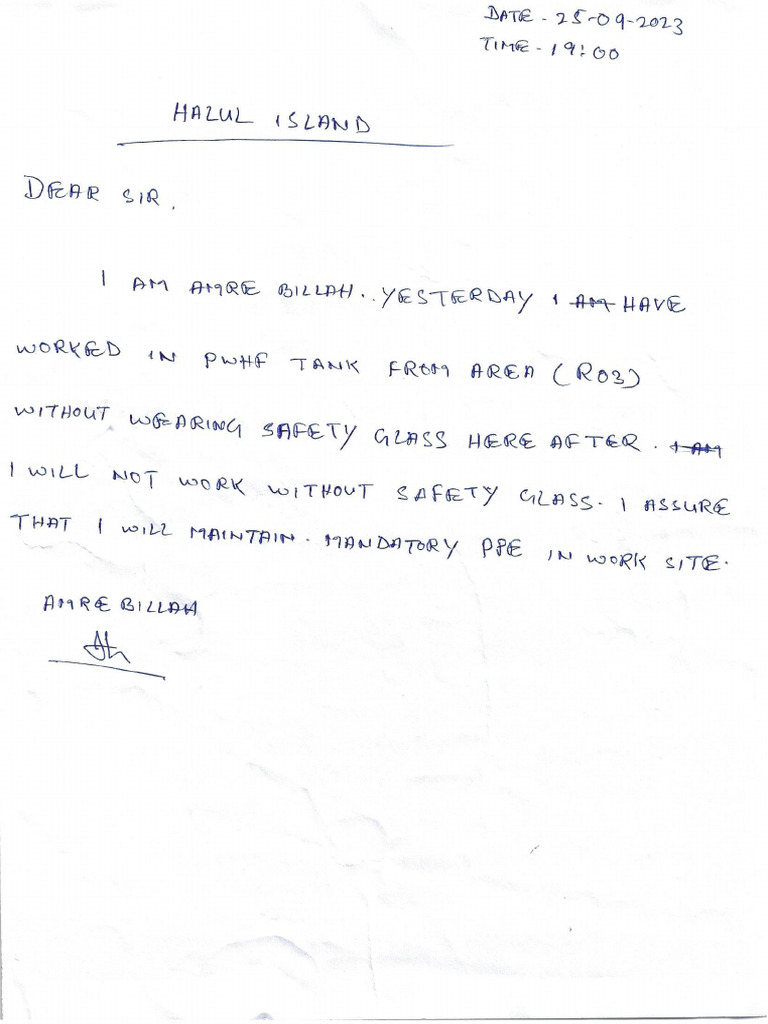 DATE - 25-09-2023
TIME - 19:00
HALUL ISLAND
DEAR SIR.
I AM AMRE BILLAH.. YESTERDAY I AM HAVE
WORKED IN PWHF TANK FROM AREA (R03)
WITHOUT WEARING SAFETY GLASS HERE AFTER. I AM
I WILL NOT WORK WITHOUT SAFETY GLASS. I ASSURE
THAT I WILL MAINTAIN. MANDATORY PPE IN WORK SITE.
AMRE BILLAH